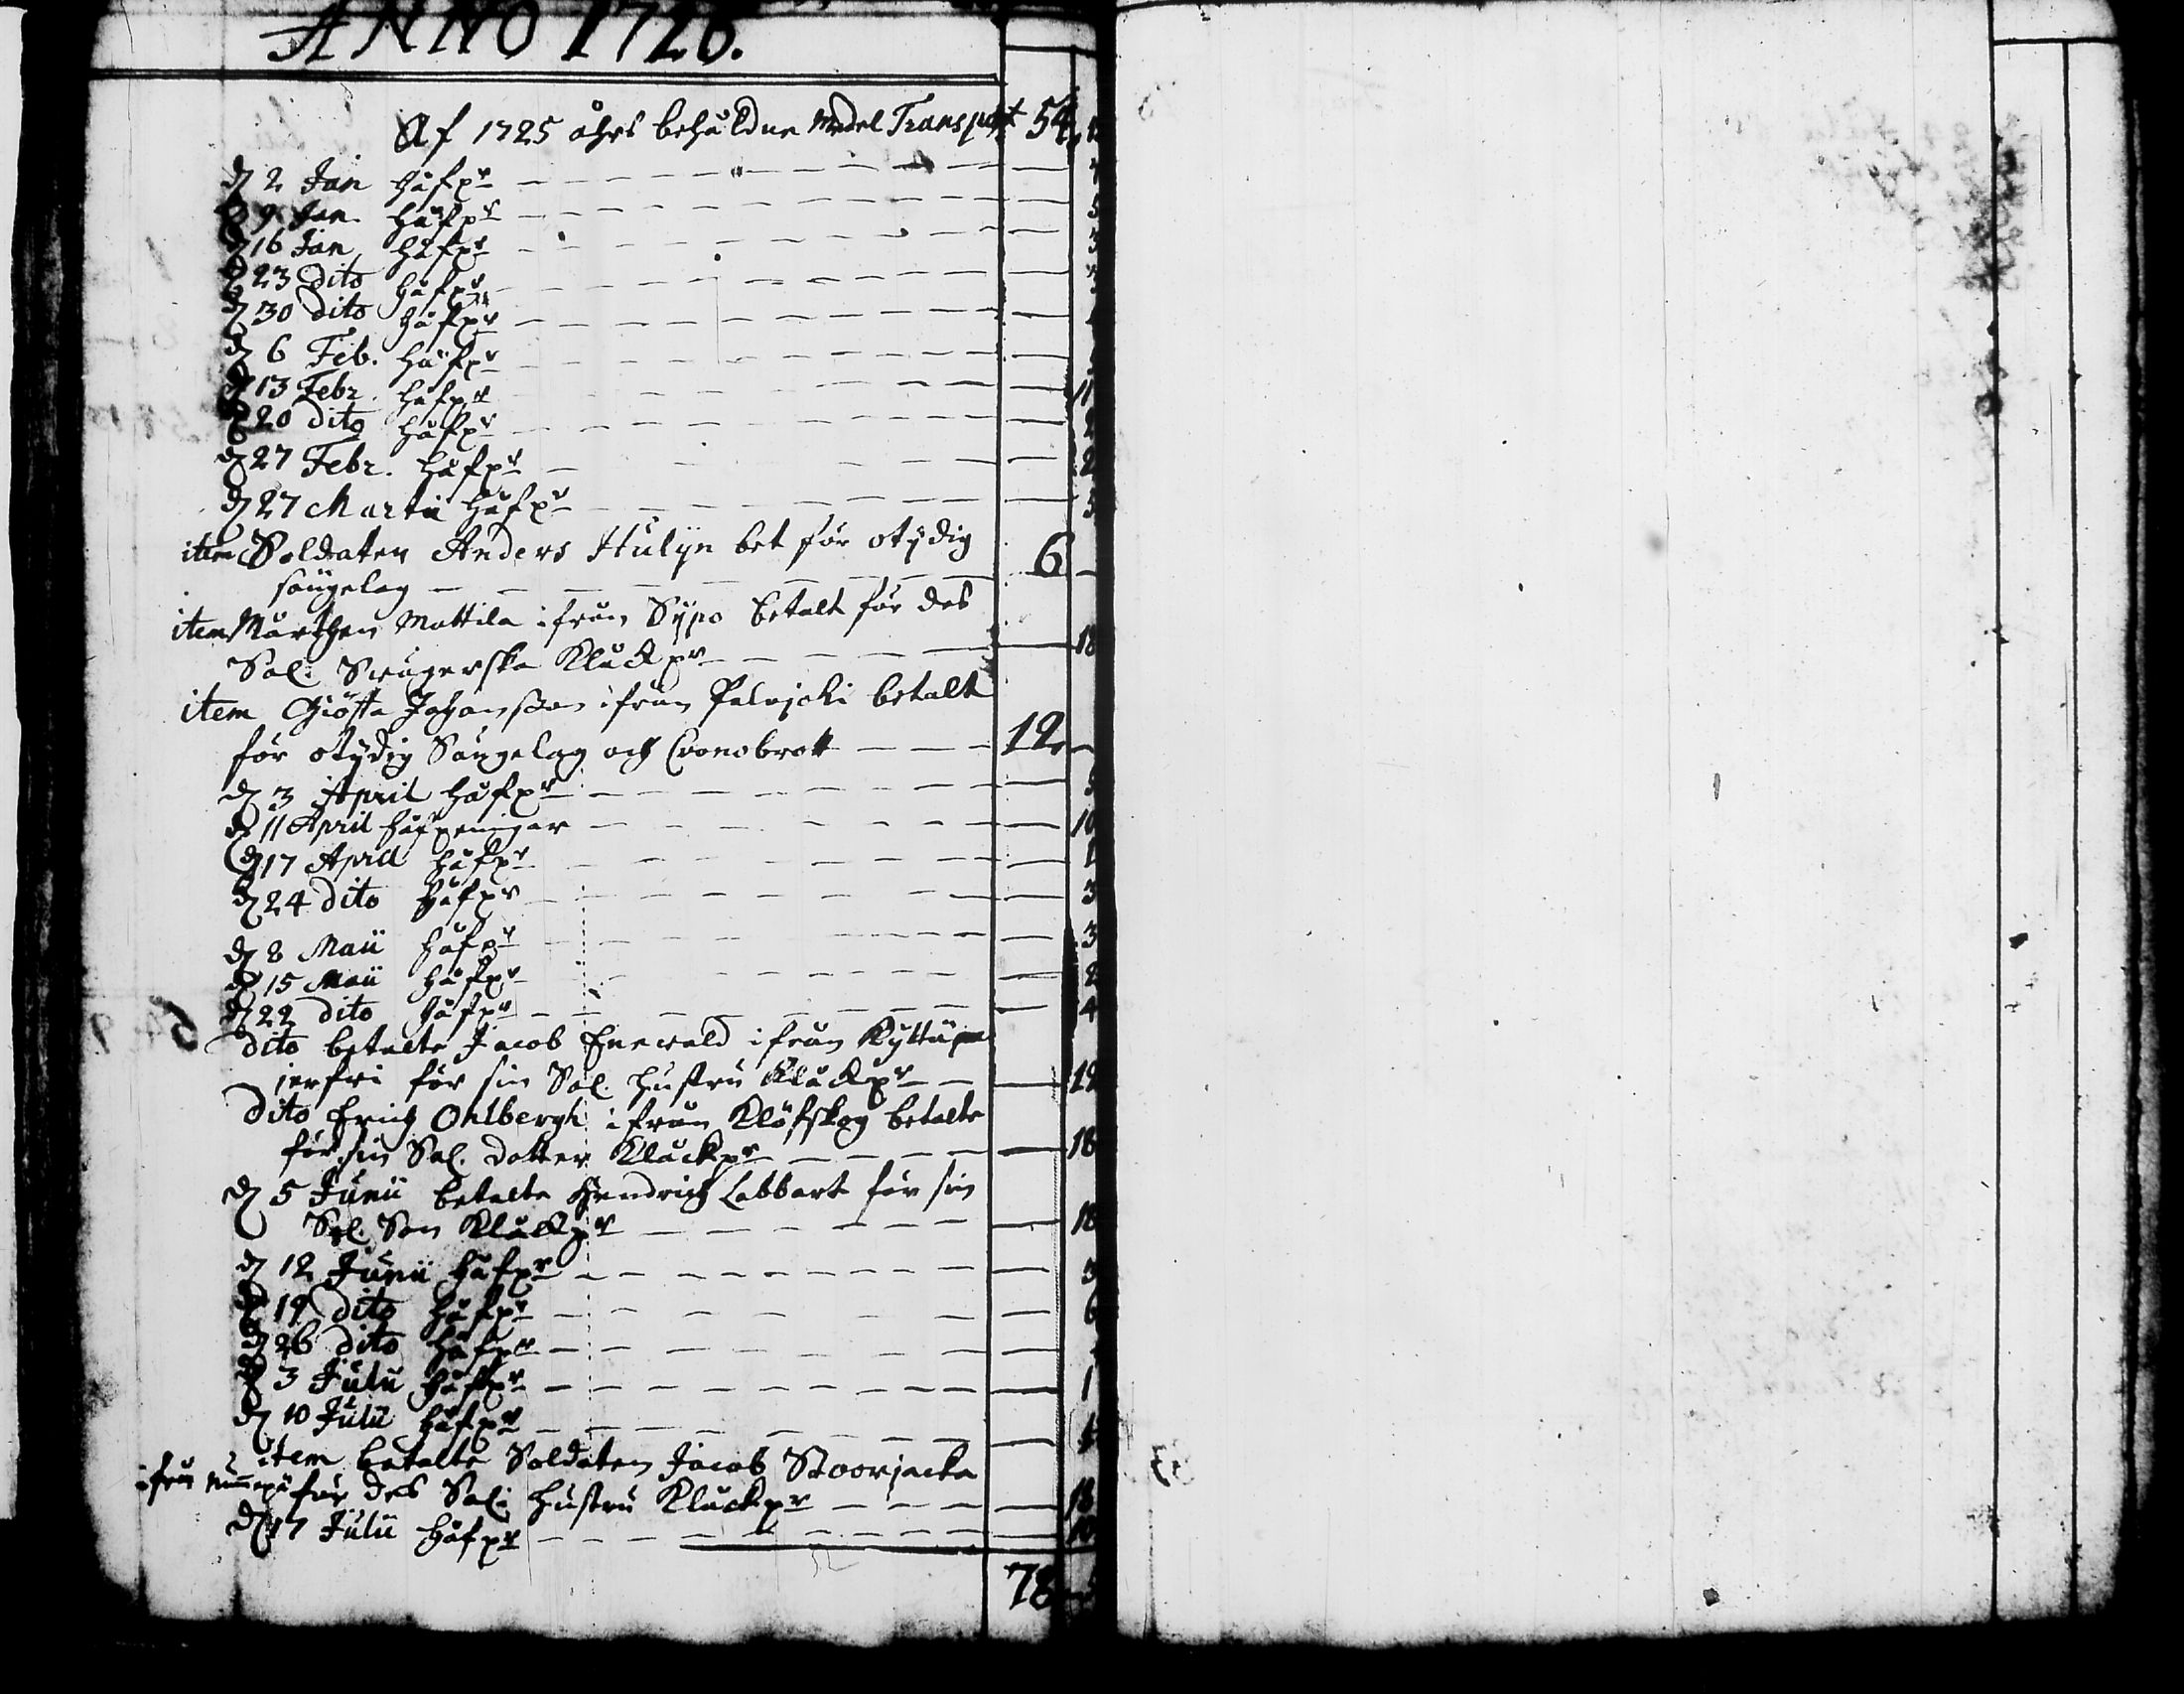 ANNO 1726.
Af 1725 åhrs behåldne Medel Transport 54
d 2 Jan håfpr
d 9 Jan. håfpr 5
d 16 Jan håfpr 3
d 23 dito håfpr
d 30 dito håfpr
d 6 Feb. håfpr
d 13 Febr. håfpr 11
d 20 dito håfpr
d 27 Febr. håfpr 2
d 27 Martii håfpr 5
item Soldaten Anders Hulijn bet för otijdig
sängelag 6 —
item Mårthen Mattila ifrån Sypo betalt för des
Sal. Swägerska Klåckpr 18
item Giösta Johansson ifrån Palojoki betalt
för otijdig Sängelag och Cronobrott 12 —
d 3 April håfpr 5
d 11 April håfpeningar 10
d 17 April håfpr 1
d 24 dito håfpr 3
d 8 Maii håfpr 3
d 15 Maii håfpr 2
d 22 dito håfpr 4
dito betalte Jacob Enewald ifrån Kyttä
jerfri för sin Sal. hustru Klåckpr 12
dito Erich Ohlbergh ifrån Klöfskog betalte
för sin Sal. dotter Klåckpr 18
d 5 Junii betalte Hendrich Labbart för sin
Sal. Son Klåckpr 18
d 12 Junii håfpr 3
d 19 dito håfpr 6
d 26 dito håfpr
d 3 Julii håfpr 1
d 10 Julii håfpr
item betalte Soldaten Jacob Stoorjacka
ifrån för des Sal: hustru Klåckpr 18
d 17 Julii håfpr 10
78